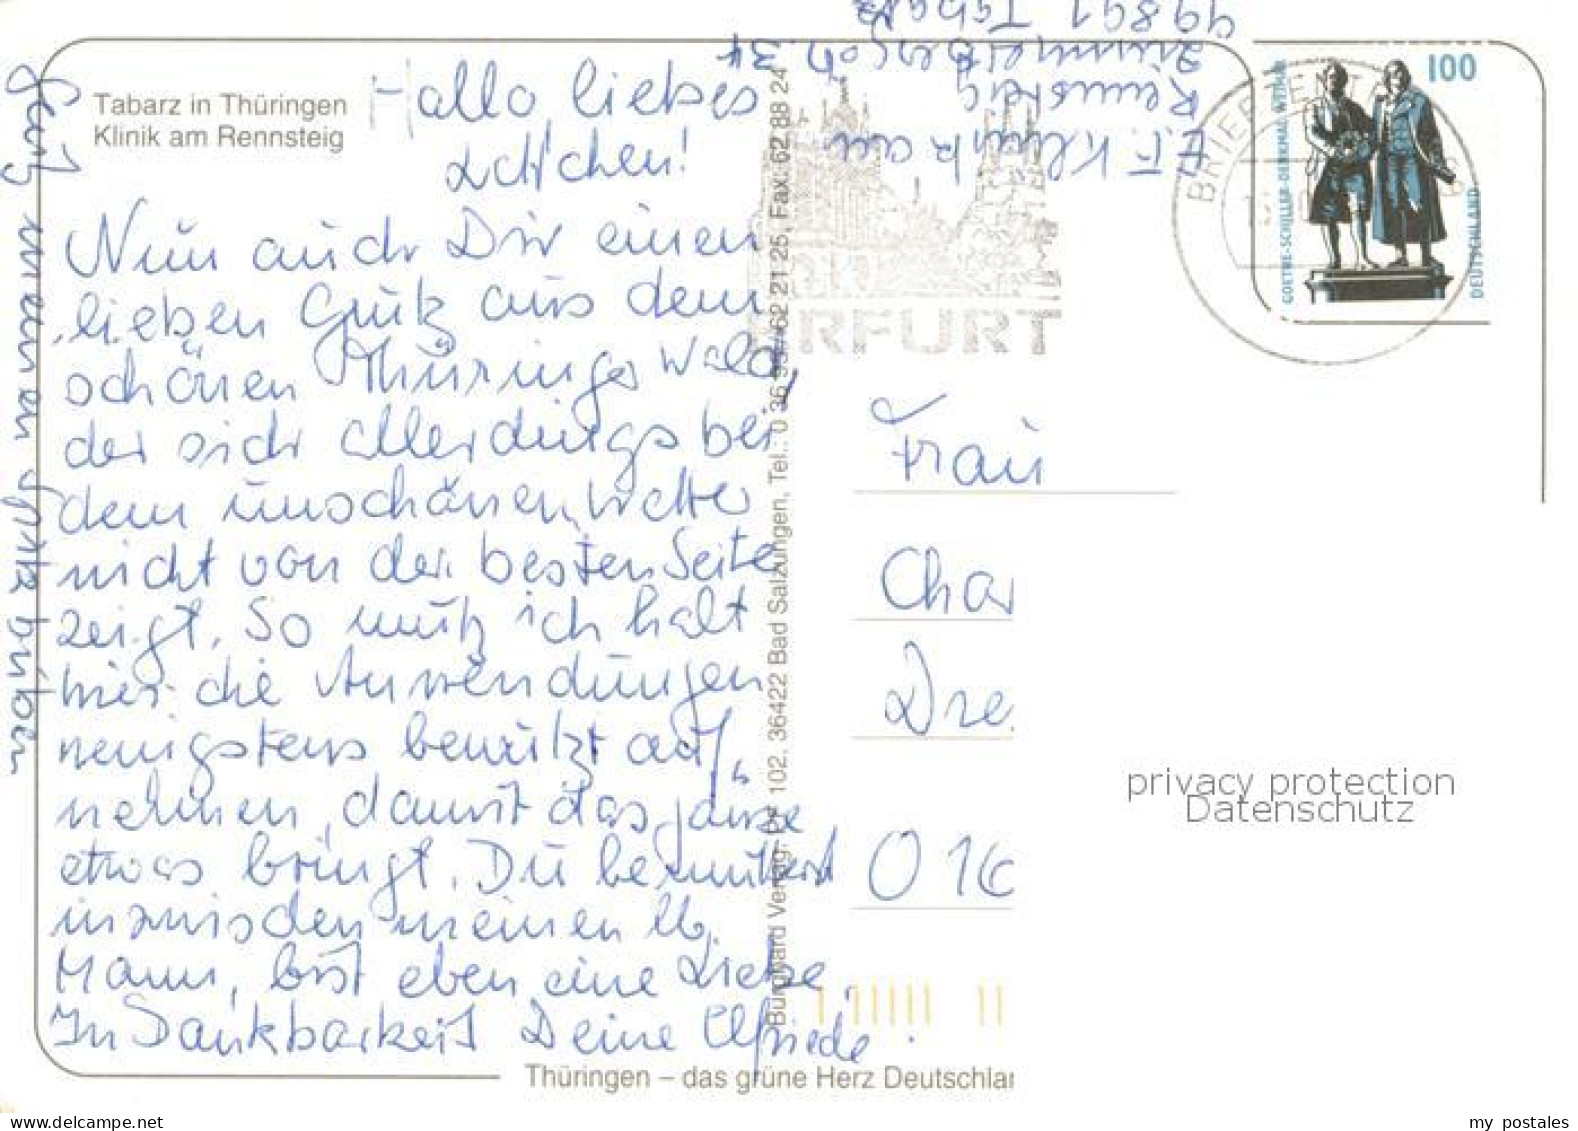 Tabarz in Thüringen
Klinik am Rennsteig
Hallo liebes
Lottchen!
Nun auch Dir einen
lieben Gruß aus dem
schönen Thüringer Wald,
der sich allerdings bei
dem unschönen Wetter
nicht von der besten Seite
zeigt. So muß ich halt
hier die Anwendungen
wenigstens bewußt auf„
nehmen, damit das Ganze
etwas bringt. Du bemutterst
inzwischen meinen lb.
Mann, bist eben eine Liebe.
In Dankbarkeit Deine Elfriede.
Gruß meinen drüben
Klinik am
Rennsteig
Zimmerbergstr. 34
99891 Tabarz
Burghard Verlag, PF 102, 36422 Bad Salzungen, Tel.: 0 36 95 / 62 21 25, Fax: 62 88 24
ERFURT
BRIEFZENTRUM
GOETHE-SCHILLER-DENKMAL WEIMAR
100
DEUTSCHLAND
Frau
Char
Dre
016
privacy protection
Datenschutz
Thüringen – das grüne Herz Deutschlan
my postales